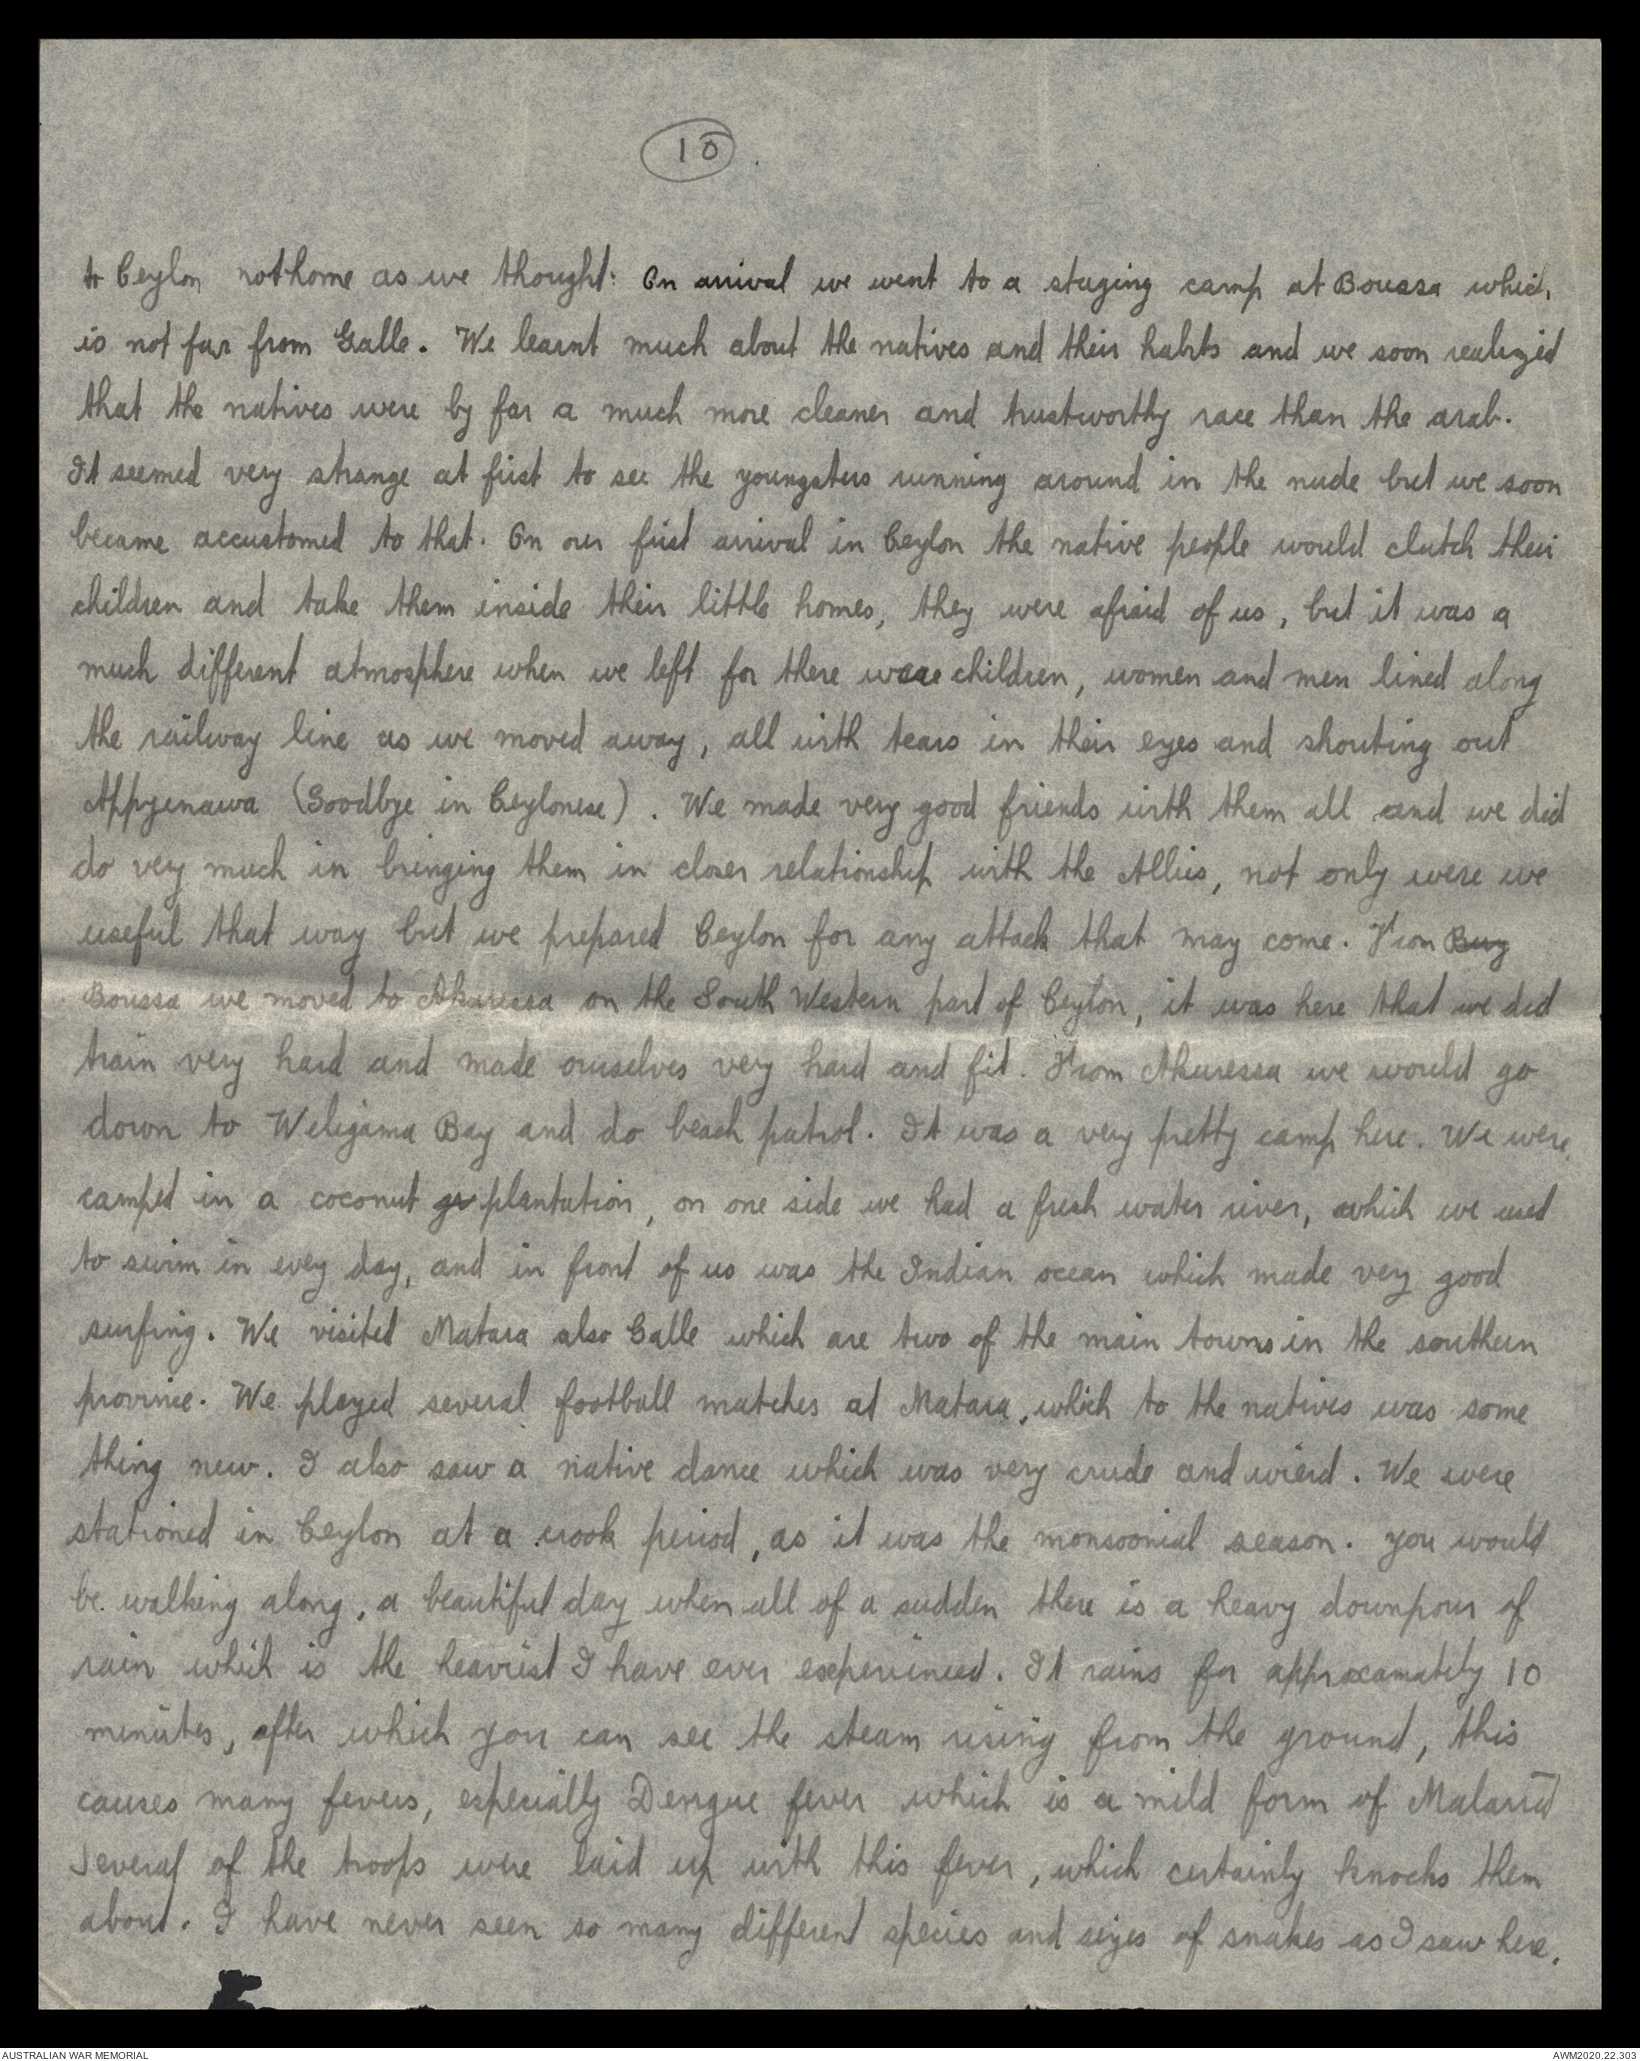 10
to Ceylon not home as we thought: On arrival we went to a staging camp at Boussa which
is not far from Galle. We learnt much about the natives and their habits and we soon realized
that the natives were by far a much more cleaner and trustworthy race than the arab.
It seemed very strange at first to see the youngsters running around in the nude but we soon
became accustomed to that. On our first arrival in Ceylon the native people would clutch their
children and take them inside their little homes, they were afraid of us, but it was a
much different atmosphere when we left for there were children, women and men lined along
the railway line as we moved away, all with tears in their eyes and shouting out
Appyenawa (Goodbye in Ceylonese). We made very good friends with them all and we did
do very much in bringing them in closer relationship with the Allies, not only were we
useful that way but we prepared Ceylon for any attack that may come. From Buy
Boussa we moved to Akuressa on the South Western part of Ceylon, it was here that we did
train very hard and made ourselves very hard and fit. From Akuressa we would go
down to Weligama Bay and do beach patrol. It was a very pretty camp here. We were
camped in a coconut gr plantation, on one side we had a fresh water river, which we used
to swim in evey day, and in front of us was the Indian ocean which made very good
surfing. We visited Matara also Galle which are two of the main towns in the southern
province. We played several football matches at Matara, which to the natives was some
thing new. I also saw a native dance which was very crude and wierd. We were
stationed in Ceylon at a crook period, as it was the monsoonial season. You would
be walking along, a beautiful day when all of a sudden there is a heavy downpour of
rain which is the heaviest I have ever experienced. It rains for approxamately 10
minutes, after which you can see the steam rising from the ground, this
causes many fevers, especially Dengue fever which is a mild form of Malaria
Several of the troops were laid up with this fever, which certainly knocks them
about. I have never seen so many different species and sizes of snakes as I saw here.
AUSTRALIAN WAR MEMORIAL
AWM2020.22.303